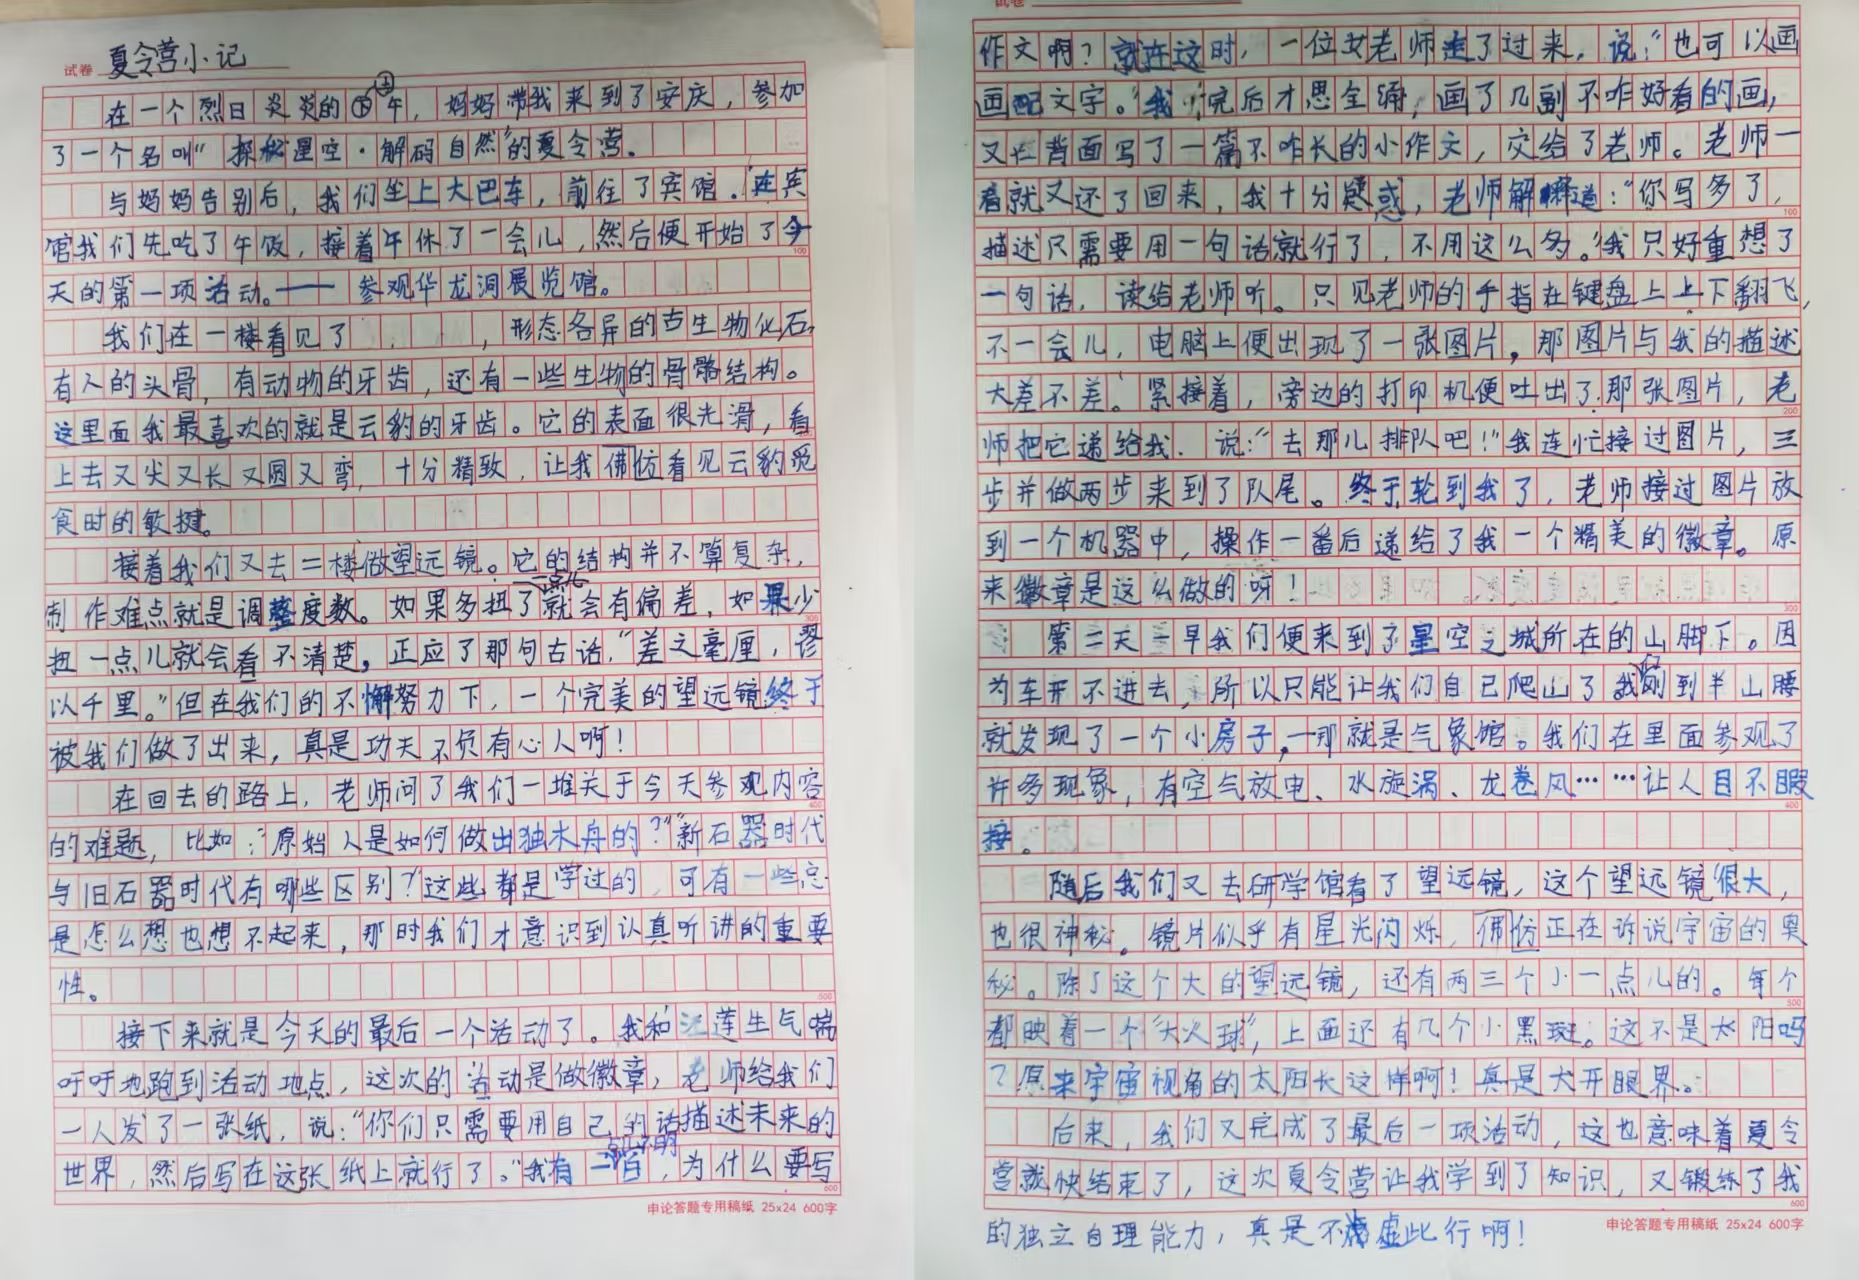 试卷 夏令营小记
在一个烈日炎炎的上午，妈妈带我来到了安庆，参加
了一个名叫“探秘星空·解码自然”的夏令营。
与妈妈告别后，我们坐上大巴车，前往了宾馆。在宾
馆我们先吃了午饭，接着午休了一会儿，然后便开始了今
100
天的第一项活动。——参观华龙洞展览馆。
我们在一楼看见了，形态各异的古生物化石，
有人的头骨，有动物的牙齿，还有一些生物的骨骼结构。
这里面我最喜欢的就是云豹的牙齿。它的表面很光滑，看
上去又尖又长又圆又弯，十分精致，让我佛仿看见云豹觅
食时的敏捷。
接着我们又去二楼做望远镜。它的结构并不算复杂，
制作难点就是调整度数。如果多扭了一点儿就会有偏差，如果少
300
扭一点儿就会看不清楚，正应了那句古话，“差之毫厘，谬
以千里。”但在我们的不懈努力下，一个完美的望远镜终于
被我们做了出来，真是功夫不负有心人啊！
在回去的路上，老师问了我们一堆关于今天参观内容
400
的难题，比如：“原始人是如何做出独木舟的？”“新石器时代
与旧石器时代有哪些区别？”这些都是学过的，可有一些总
是怎么想也想不起来，那时我们才意识到认真听讲的重要
性。
500
接下来就是今天的最后一个活动了。我和江莲生气喘
吁吁地跑到活动地点，这次的活动是做徽章，老师给我们
一人发了一张纸，说：“你们只需要用自己的话描述未来的
世界，然后写在这张纸上就行了。”我有一百，为什么要写
600
申论答题专用稿纸 25x24 600字
试卷
作文啊？就在这时，一位女老师走了过来，说：“也可以画
画配文字。”我听完后才思全涌，画了几副不咋好看的画，
又在背面写了一篇不咋长的小作文，交给了老师。老师一
看就又还了回来，我十分疑惑，老师解释道：“你写多了，
100
描述只需要用一句话就行了，不用这么多。”我只好重想了
一句话，读给老师听。只见老师的手指在键盘上上下翻飞，
不一会儿，电脑上便出现了一张图片，那图片与我的描述
大差不差。紧接着，旁边的打印机便吐出了那张图片，老
200
师把它递给我，说：“去那儿排队吧！”我连忙接过图片，三
步并做两步来到了队尾。终于轮到我了，老师接过图片放
到一个机器中，操作一番后递给了我一个精美的徽章。原
来徽章是这么做的呀！
300
第二天一早我们便来到了星空之城所在的山脚下。因
为车开不进去，所以只能让我们自己爬山了我们刚到半山腰
就发现了一个小房子，那就是气象馆。我们在里面参观了
许多现象，有空气放电、水旋涡、龙卷风……让人目不暇
400
接。
随后我们又去研学馆看了望远镜，这个望远镜很大，
也很神秘。镜片似乎有星光闪烁，佛仿正在诉说宇宙的奥
秘。除了这个大的望远镜，还有两三个小一点儿的。每个
500
都映着一个“大火球”，上面还有几个小黑斑。这不是太阳吗
？原来宇宙视角的太阳长这样啊！真是大开眼界。
后来，我们又完成了最后一项活动，这也意味着夏令
营就快结束了，这次夏令营让我学到了知识，又锻练了我
600
申论答题专用稿纸 25x24 600字
的独立自理能力，真是不虚此行啊！